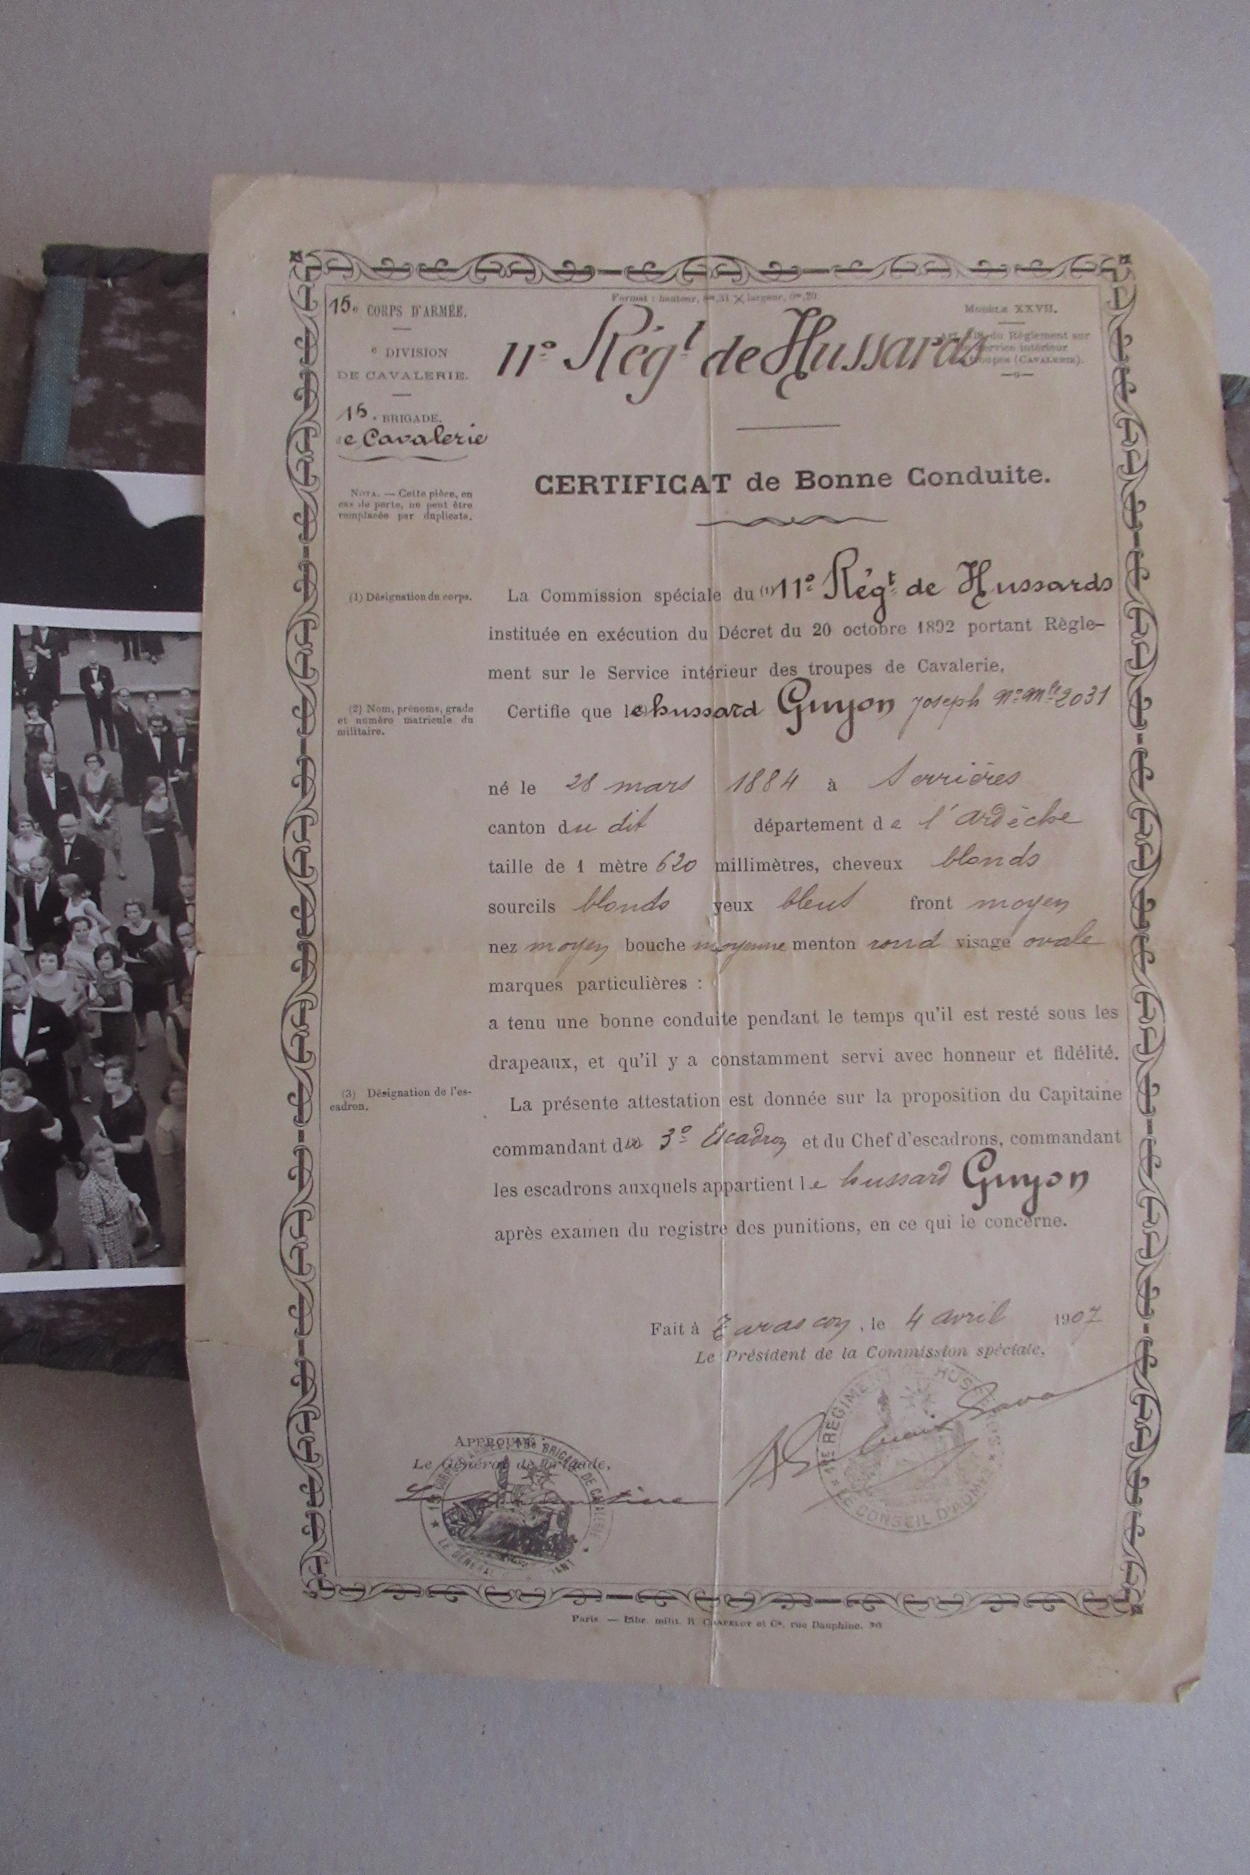 Format : hauteur, 0m,31 × largeur, 0m,20
15e CORPS D'ARMÉE.
e DIVISION
DE CAVALERIE.
15e BRIGADE.
de Cavalerie
NOTA. — Cette pièce, en
cas de perte, ne peut être
remplacée par duplicata.
MODÈLE XXVII.
du Règlement sur
service intérieur
troupes (CAVALERIE).
11e Régt de Hussards
CERTIFICAT de Bonne Conduite.
(1) Désignation du corps.
La Commission spéciale du (1) 11e Régt de Hussards
instituée en exécution du Décret du 20 octobre 1892 portant Règle-
ment sur le Service intérieur des troupes de Cavalerie,
(2) Nom, prénoms, grade
et numéro matricule du
militaire.
Certifie que le hussard Guyon Joseph No Mle 2031
né le 28 mars 1884 à Serrières
canton du dit département de l'ardèche
taille de 1 mètre 620 millimètres, cheveux blonds
sourcils blonds yeux bleus front moyen
nez moyen bouche moyenne menton rond visage ovale
marques particulières :
a tenu une bonne conduite pendant le temps qu'il est resté sous les
drapeaux, et qu'il y a constamment servi avec honneur et fidélité.
(3) Désignation de l'es-
cadron.
La présente attestation est donnée sur la proposition du Capitaine
commandant du 3e Escadron et du Chef d'escadrons, commandant
les escadrons auxquels appartient le hussard Guyon
après examen du registre des punitions, en ce qui le concerne.
Fait à Tarascon, le 4 avril 1907
Le Président de la Commission spéciale.
APPROUVÉ :
Le Général de Brigade,
BRIGADE DE CAVALERIE
LE GÉNÉRAL
RÉGIMENT HUSSARDS
CONSEIL D'ADMI
Paris — Libr. milit. R. CHAPELOT et Ce, rue Dauphine, 30